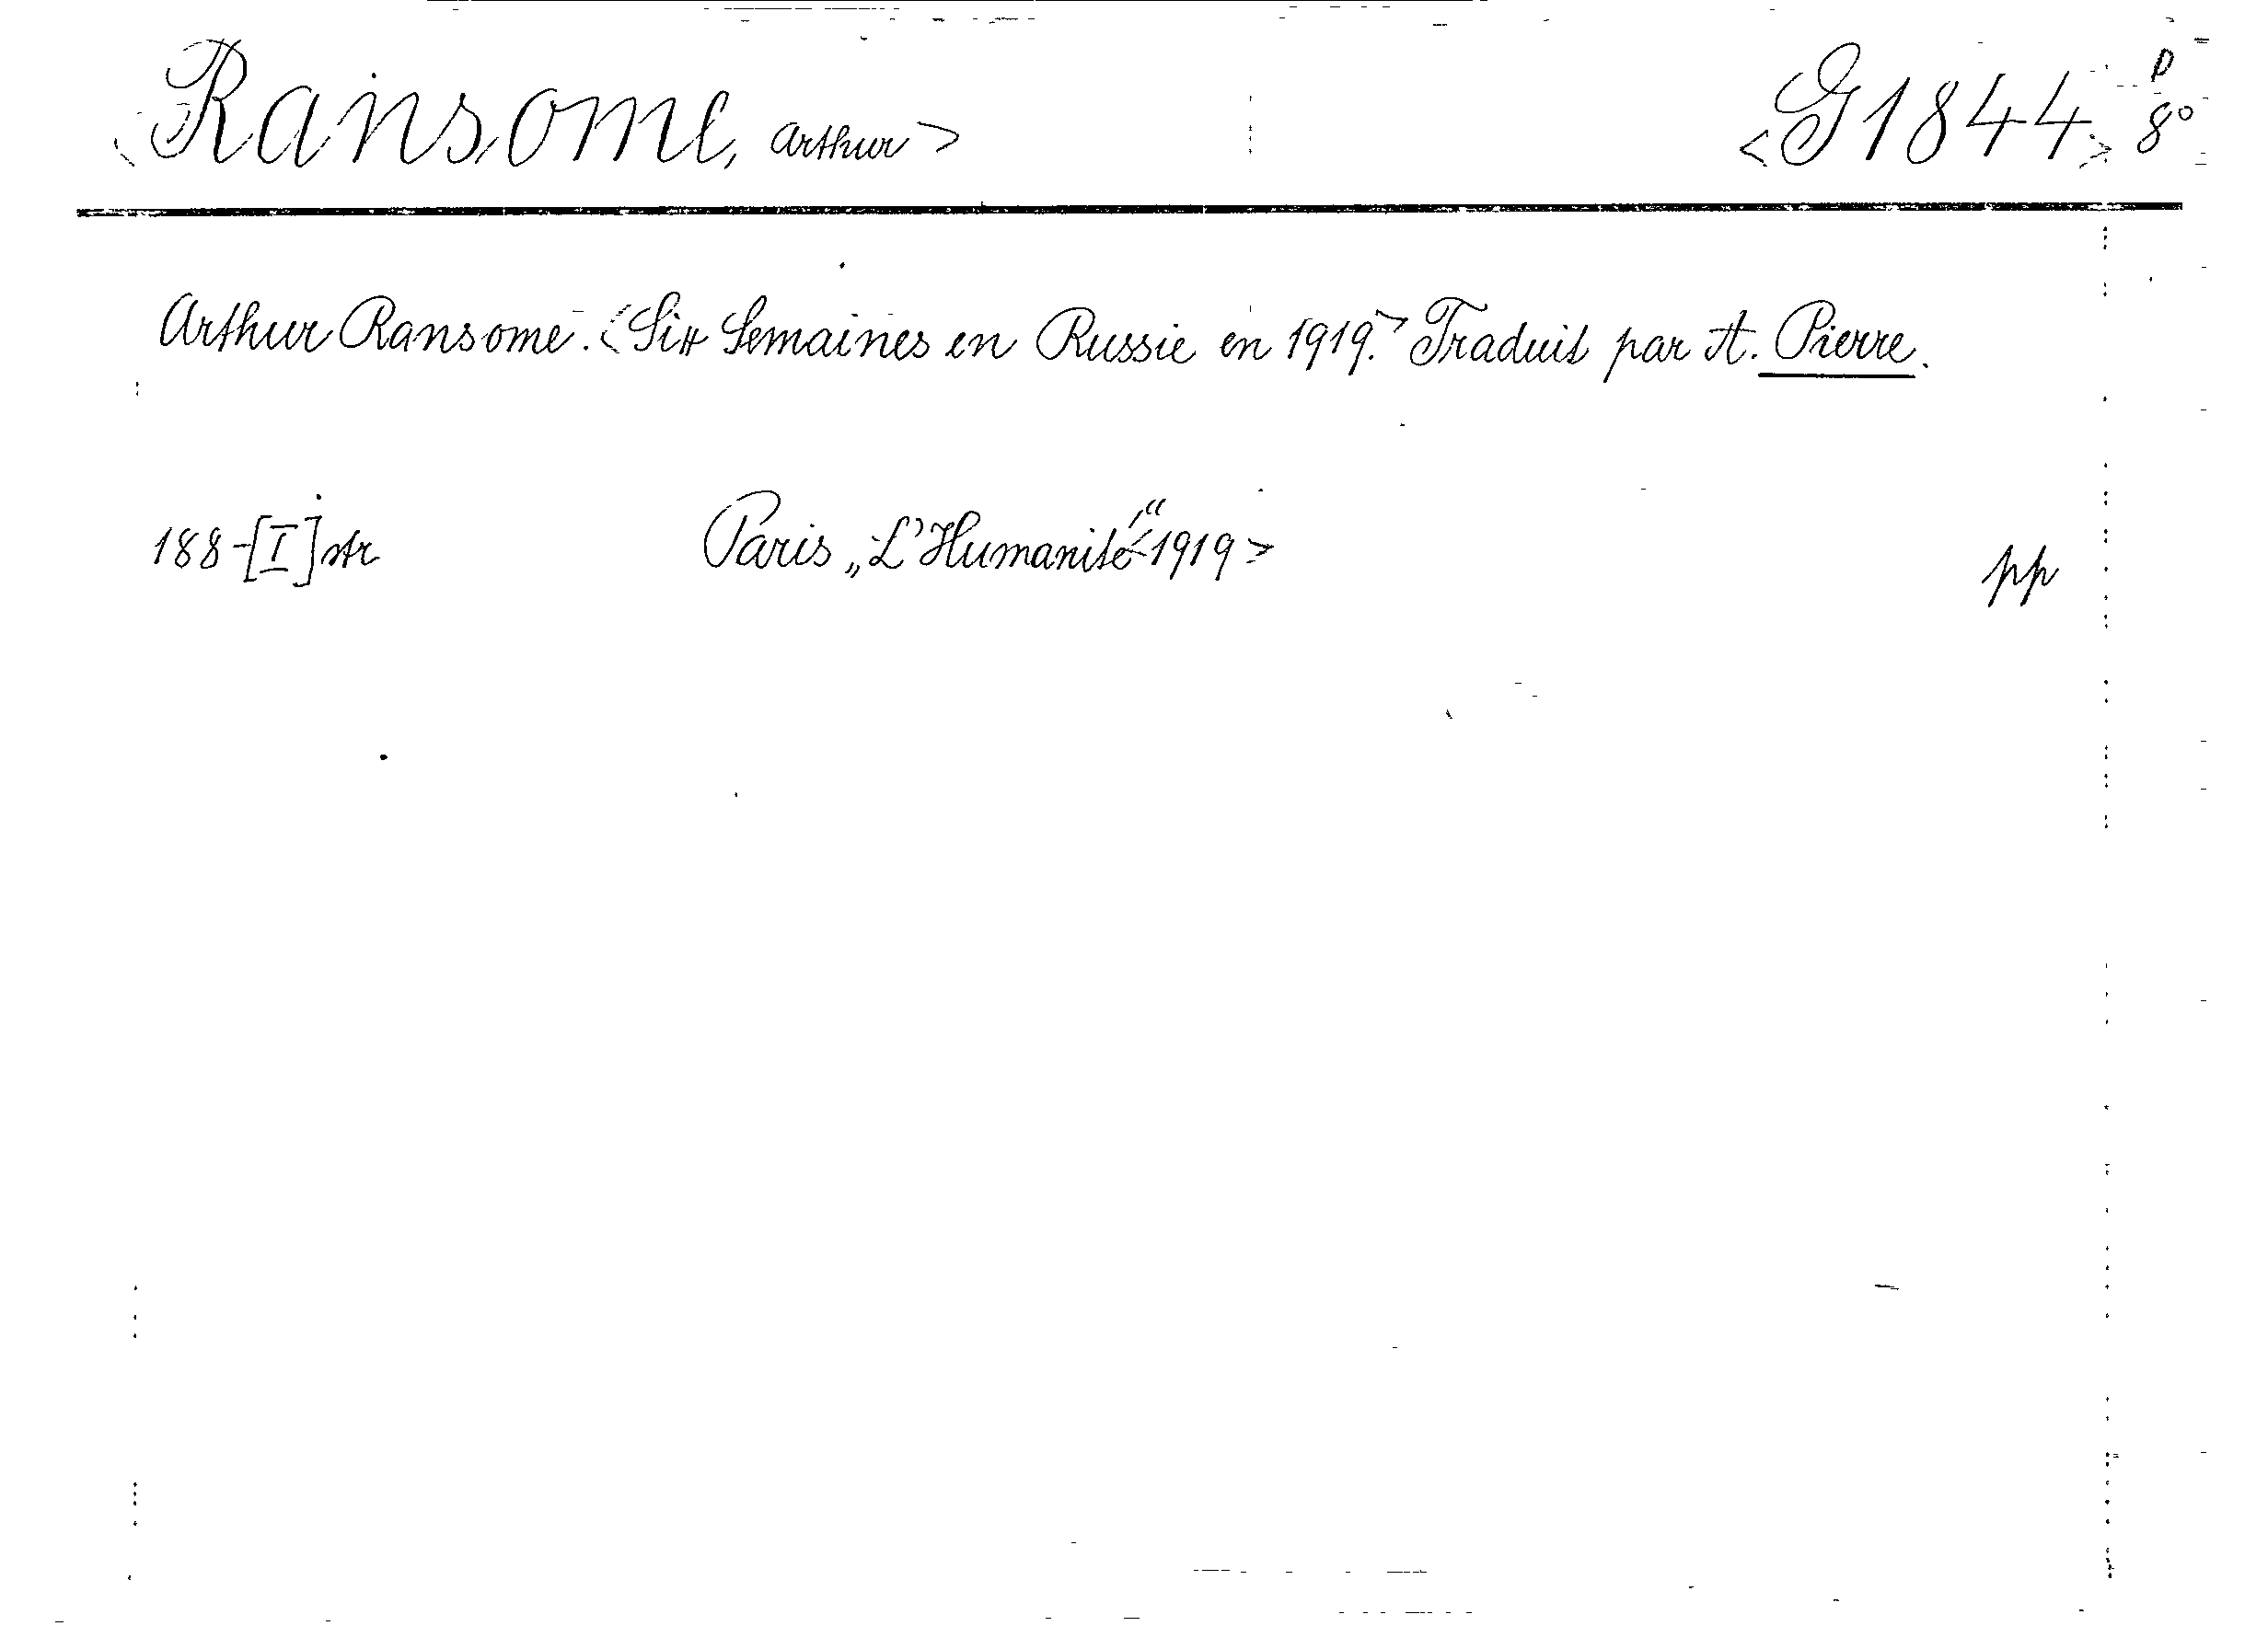 <Ransome, Arthur> <G1844> p 8°
Arthur Ransome. <Six Semaines en Russie en 1919.> Traduit par A. Pierre.
188-[I] str Paris „L'Humanité“ <1919> pp